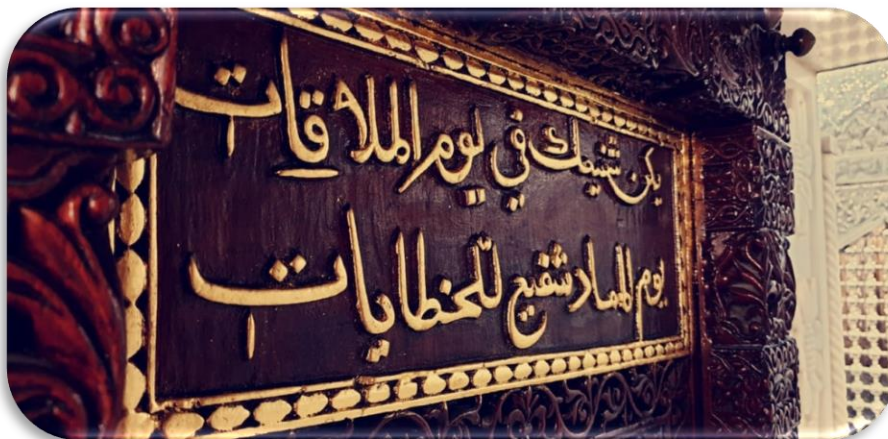 يكن شفيعك في يوم الملاقات
يوم المعاد شفيع للخطايات